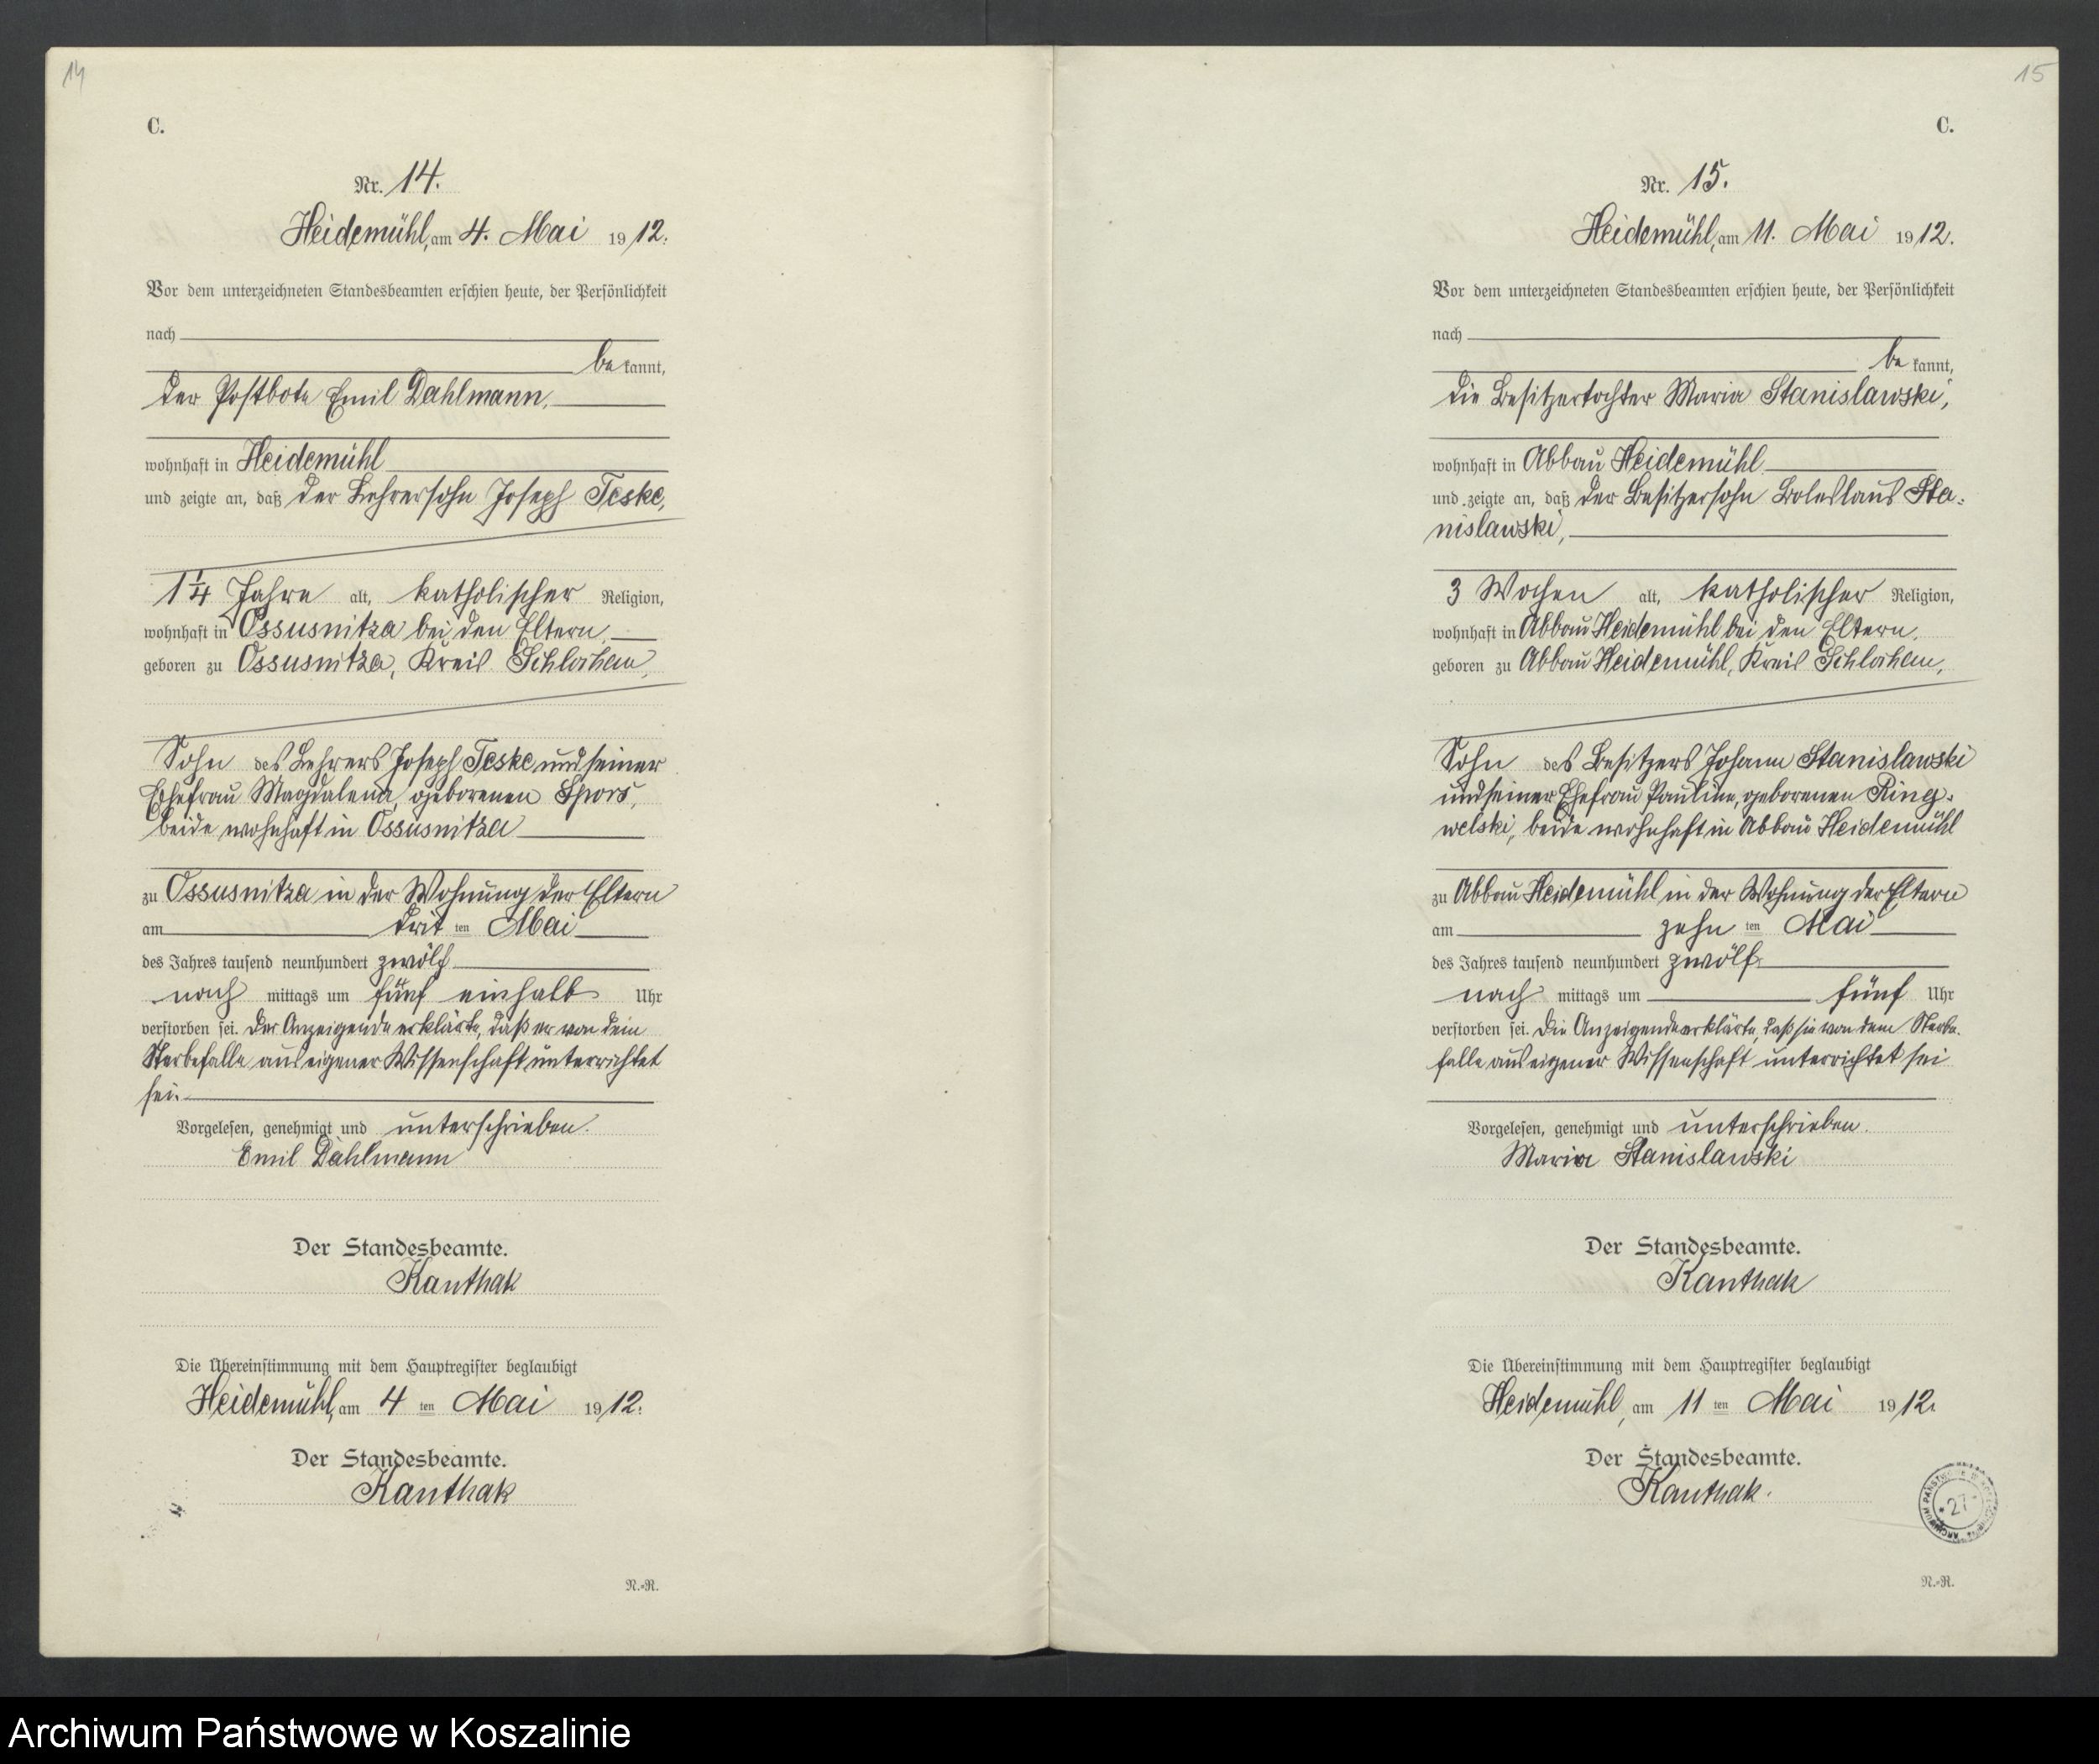 14
C.
Nr. 14.
Heidemühl, am 4. Mai 1912.
Vor dem unterzeichneten Standesbeamten erschien heute, der Persönlichkeit
nach
bekannt,
der Postbote Emil Dahlmann,
wohnhaft in Heidemühl
und zeigte an, daß der Lehrersohn Joseph Teske,
1 1/4 Jahre alt, katholischer Religion,
wohnhaft in Ossusnitza bei den Eltern,
geboren zu Ossusnitza, Kreis Schlochau,
Sohn des Lehrers Joseph Teske und seiner
Ehefrau Magdalena, geborenen Spors,
beide wohnhaft in Ossusnitza
zu Ossusnitza in der Wohnung der Eltern
am dritten Mai
des Jahres tausend neunhundert zwölf
nachmittags um fünf einhalb Uhr
verstorben sei. Der Anzeigende erklärte, daß er von dem
Sterbefalle aus eigener Wissenschaft unterrichtet
sei.
Vorgelesen, genehmigt und unterschrieben.
Emil Dahlmann
Der Standesbeamte.
Kanthak
Die Übereinstimmung mit dem Hauptregister beglaubigt
Heidemühl, am 4ten Mai 1912.
Der Standesbeamte.
Kanthak
N.-R.
15
C.
Nr. 15.
Heidemühl, am 11. Mai 1912.
Vor dem unterzeichneten Standesbeamten erschien heute, der Persönlichkeit
nach
bekannt,
die Besitzertochter Maria Stanislawski,
wohnhaft in Abbau Heidemühl
und zeigte an, daß der Besitzersohn Boleslaus Sta-
nislawski,
3 Wochen alt, katholischer Religion,
wohnhaft in Abbau Heidemühl bei den Eltern,
geboren zu Abbau Heidemühl, Kreis Schlochau,
Sohn des Besitzers Johann Stanislawski
und seiner Ehefrau Pauline, geborenen Ring-
welski, beide wohnhaft in Abbau Heidemühl
zu Abbau Heidemühl in der Wohnung der Eltern
am zehnten Mai
des Jahres tausend neunhundert zwölf
nachmittags um fünf Uhr
verstorben sei. Die Anzeigende erklärte, daß sie von dem Sterbe-
falle aus eigener Wissenschaft unterrichtet sei
Vorgelesen, genehmigt und unterschrieben.
Maria Stanislawski
Der Standesbeamte.
Kanthak
Die Übereinstimmung mit dem Hauptregister beglaubigt
Heidemühl, am 11ten Mai 1912.
Der Standesbeamte.
Kanthak.
ARCHIWUM PAŃSTWOWE W
* 27 *
N.-R.
Archiwum Państwowe w Koszalinie